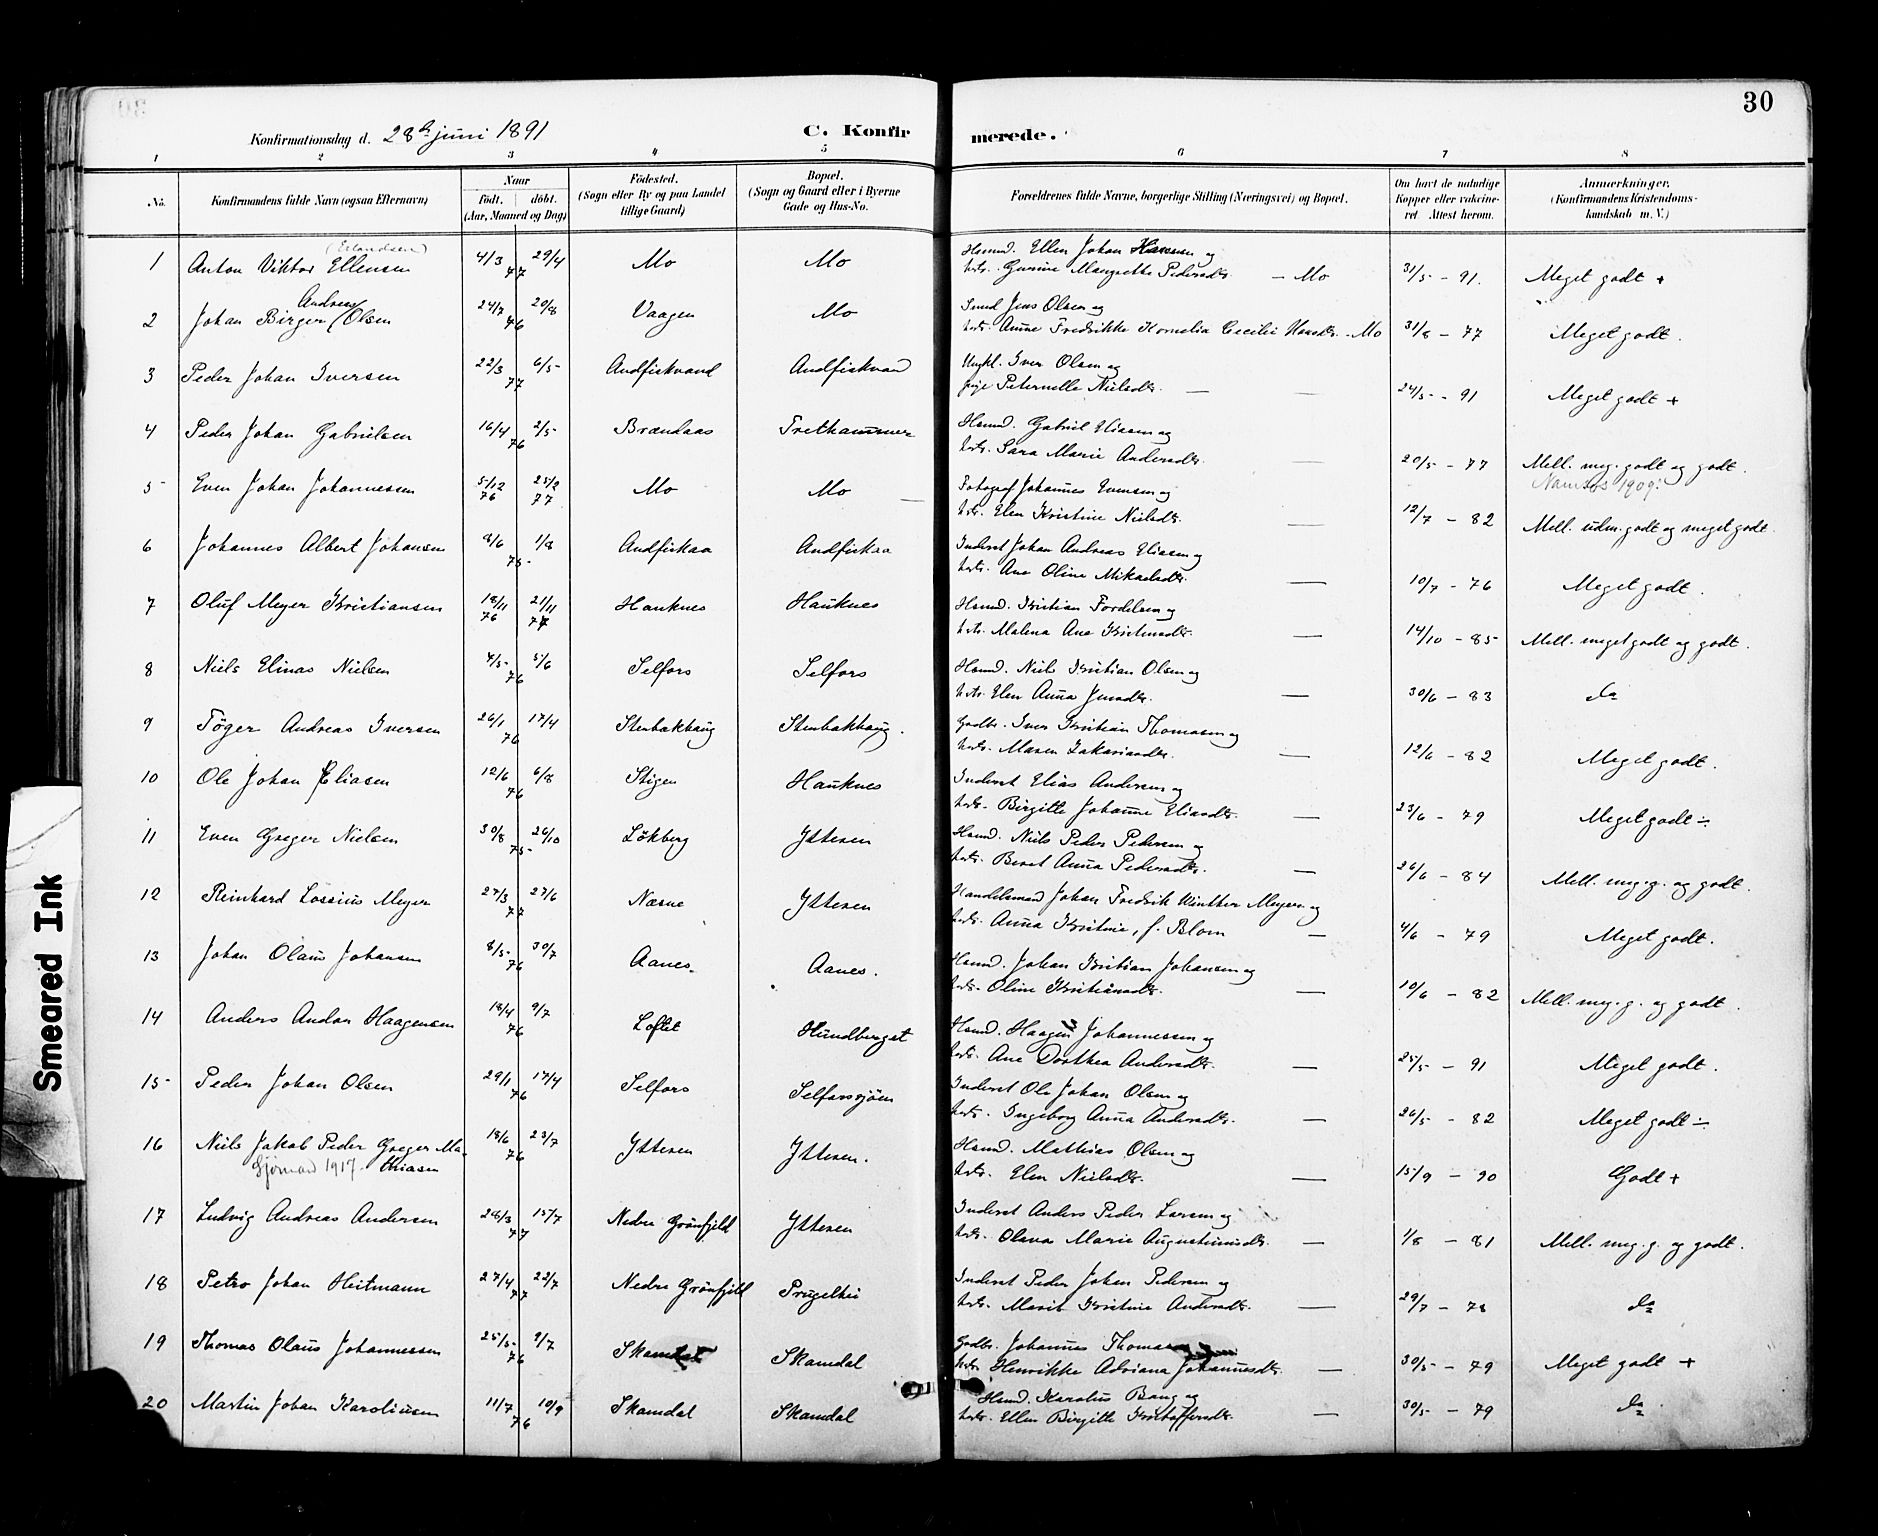 30
Konfirmationsdag d. 28de juni 1891
C. Konfirmerede.
1 2 3 4 5 6 7 8
No. Konfirmandens fulde Navn (ogsaa Efternavn) Naar födt. döbt. (Aar, Maaned og Dag) Födested. (Sogn eller By og paa Landet tillige Gaard) Bopæl. (Sogn og Gaard eller i Byerne Gade og Hus-No. Forældrenes fulde Navne, borgerlige Stilling (Næringsvei) og Bopæl. Om havt de naturlige Kopper eller vaccineret. Attest herom. Anmærkninger. (Konfirmandens Kristendomskundskab m. V.)
(Erlandsen)
1 Anton Viktor Ellensen 4/3 29/4 77 Mo Mo Husmd. Ellen Johan Hansen og
hstr. Gurine Margrethe Pedersdtr. — Mo 31/5 - 91. Meget godt +
Andreas
2 Johan Birger (Olsen 24/7 20/8 76 Vaagen Mo Smed Jens Olsen og
hstr. Anne Fredrikke Kornelia Cecilie Hansdtr. - Mo 31/8 - 77 Meget godt.
3 Peder Johan Iversen 22/3 6/5 77 Andfiskvand Andfiskvan Ungkl. Iver Olsen og
pige Peternelle Nielsdtr. — 24/5 - 91 Meget godt +
4 Peder Johan Gabrielsen 16/4 2/5 76 Brændaas Trethammer Husmd. Gabriel Eliasen og
hstr. Sara Marie Andersdtr. — 20/5 - 77 Mell. meg. godt og godt.
Namsos 1909.
5 Even Johan Johannessen 5/12 76 25/2 77 Mo Mo — Fotograf Johannes Evensen og
hstr. Elen Kristine Nielsdtr. — 12/7 - 82 Mell. udm. godt og meget godt.
6 Johannes Albert Johansen 8/6 1/8 75 Andfiskaa Andfiskaa Inderst Johan Andreas Eliasen og
hstr. Ane Oline Mikaelsdtr. — 10/7 - 76 Meget godt.
7 Oluf Meyer Kristiansen 18/11 76 21/11 77 Hauknes Hauknes Husmd. Kristian Fordelsen og
hstr. Malena Ane Kristensdtr. — 14/10 - 85 Mell. meget godt og godt.
8 Niels Elinas Nielsen 4/5 5/6 76 Selfors Selfors Husmd. Niels Kristian Olsen og
hstr. Elen Anna Jensdtr. — 30/6 - 83 do
9 Töger Andreas Iversen 26/1 17/4 76 Stenbakhaug Stenbakhaug. Gadbr. Iver Kristian Thomasen og
hstr. Maren Zakariasdtr. — 12/6 - 82 Meget godt.
10 Ole Johan Eliasen 12/6 6/8 76 Stigen Hauknes Inderst Elias Andersen og
hstr. Birgitte Johanne Eliasdtr. — 23/6 - 79 Meget godt ÷
11 Even Greger Nielsen 30/8 26/10 75 Lökberg Ytteren Husmd. Niels Peder Pedersen og
hstr. Beret Anna Pedersdtr. — 26/6 - 84 Mell. meg. g. og godt.
12 Reinhard Lossius Meyer 27/3 27/6 77 Næsne Ytteren Handelsmand Johan Fredrik Winther Meyer og
hstr. Anna Kristine, f. Blom — 4/6 - 79 Meget godt.
13 Johan Olaus Johansen 8/5 30/7 76 Aanes. Aanes. Husmd. Johan Kristian Johansen og
hstr. Oline Kristiansdtr. — 10/6 - 82 Mell. meg. g. og godt.
14 Anders Andor Haagensen 18/4 9/7 76 Loftet Hundberget Husmd. Haagen Johannessen og
hstr. Ane Dorthea Andersdtr. — 25/5 - 91 Meget godt.
15 Peder Johan Olsen 29/1 17/4 76 Selfors Selforssjöen Inderst Ole Johan Olsen og
hstr. Ingeborg Anna Andersdtr. — 26/5 - 82 Meget godt ÷
16 Niels Jakob Peder Greger Ma- 18/6 23/7 76 Ytteren Ytteren. Husmd. Mathias Olsen og
Sjömand 1917 - thiasen hstr. Elen Nielsdtr. — 15/9 - 90 Godt +
17 Ludvig Andreas Andersen 28/3 15/7 77 Nedre Grönfjeld Ytteren Inderst Anders Peder Larsen og
hstr. Olava Marie Augustinusdtr. — 1/8 - 81 Mell. meg. g. og godt.
18 Petro Johan Heitmann 27/4 22/7 77 Nedre Grönfjeld Prygelhei Inderst Peder Johan Pedersen og
hstr. Marit Kristine Andersdtr. — 29/7 - 78 do
19 Thomas Olaus Johannessen 25/5 9/7 76 Skamdal Skamdal Gadbr. Johannes Thomassen
hstr. Henrikke Adriana Johannesdtr. — 30/5 - 79 Meget godt +
20 Martin Johan Karoliusen 11/7 10/9 76 Skamdal Skamdal Husmd. Karolius Bang og
hstr. Ellen Birgitte Kristoffersdtr. — 30/5 - 79 do
Smeared Ink